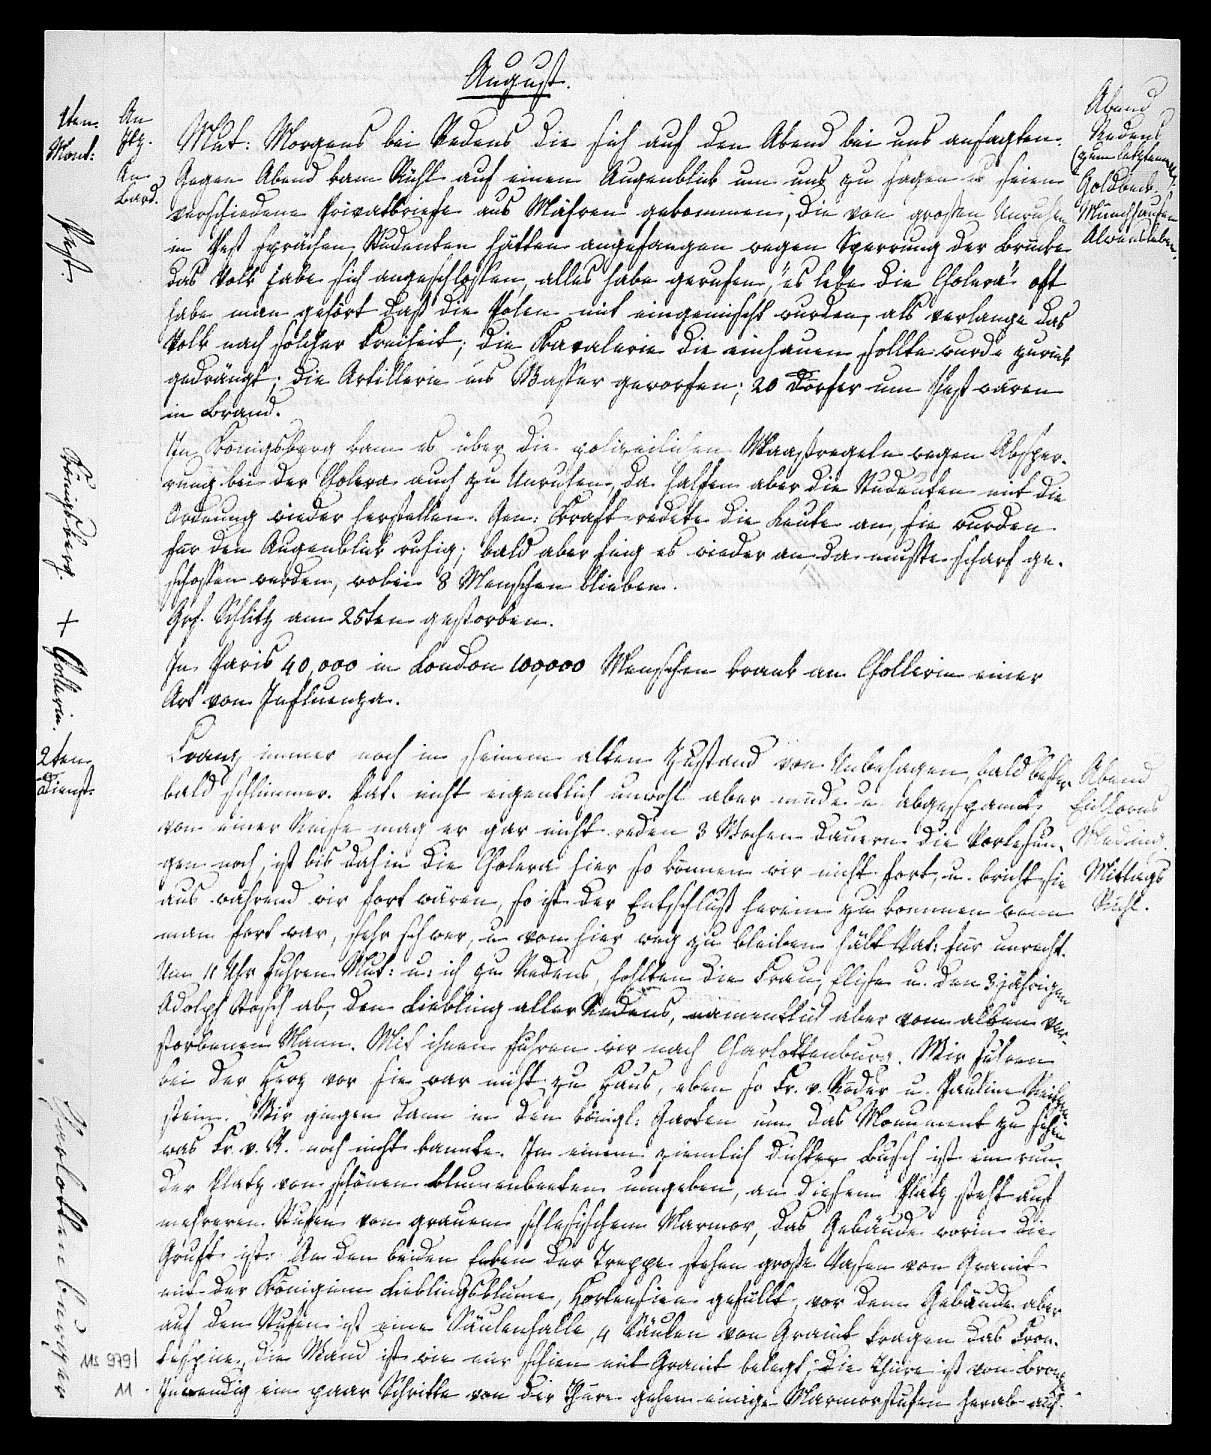 August.
1ten
Mont:
An
Hz.
An
Bard.
Mut: Morgens bei Redens die sich auf den Abend bei uns ansagten.
Gegen Abend kam Rühl auf einen Augenblick um uns zu sagen es seien
verschiedene Privatbriefe aus Mähren gekommen, die von großen Unruhen
in Pest sprächen, Studenten hätten angefangen wegen Sperrung der Brücke
das Volk habe sich angeschlossen, alles habe gerufen, "es lebe die Cholera" oft
habe man gehört daß die Polen mit eingemischt wurden, als verlange das
Volk nach solcher Freiheit; die Kavalerie die einhauen sollte wurde zurück
gedrängt; die Artillerie ins Wasser geworfen; 20 Dörfer um Pest waren
in Brand.
Abend
Redens
(zum letztenmal)
Goldbeck
Münchhausen
Alvensleben.
Pest.
In Königsberg kam es über die polizeilichen Maaßregeln wegen Absper-
rung bei der Cholera auch zu Unruhen, da halfen aber die Studenten mit die
Ordnung wieder herstellen. Gen: Krafft redete die Leute an, sie wurden
für den Augenblick ruhig; bald aber fing es wieder an, da mußte scharf ge-
schossen werden, wobei 8 Menschen blieben.
Königsberg.
Grf. Schlitz am 25ten gestorben.
+
In Paris 40,000 in London 100,000 Menschen krank an Chollerin einer
Art von Influenza.
Collerin.
2ten
Dienst:
Franz immer noch in seinem alten Zustand von Unbehagen, bald besser
bald schlimmer. Vat: nicht eigentlich unwohl aber müde u. abgespannt
von einer Reise mag er gar nicht reden 3 Wochen dauern die Vorlesun-
gen noch, ist bis dahin die Cholera hier so können wir nicht fort, u. bricht sie
aus während wir fort wären, so ist der Entschluß herein zu kommen wenn
man fort war, sehr schwer, u. von hier weg zu bleiben hält Vat: für unrecht.
Um 11 Uhr fuhren Mut: u: ich zu Redens, holten die Frau, Elise u. den 3 jährigen
Adolph ab, den Liebling aller Redens, namentlich aber vom alten ver-
storbenen Mann. Mit ihnen fuhren wir nach Charlottenburg. Wir fuhren
bei der Herz vor sie war nicht zu Haus, eben so Fr. v. Röder u. Pauline
stein. Wir gingen dann in den königl: Garten um das Monument zu sehen
was Fr. v. R. noch nicht kannte. In einem ziemlich dichten Busch ist ein run-
der Platz von schönen Blumenbeeten umgeben, an diesem Platz steht auf
mehreren Stufen von grauem schlesischem Marmor, das Gebäude worin die
Gruft ist. An den beiden Ecken der Treppe stehen große Vasen von Granit
mit der Königinn Lieblingsblume, Hortensien gefüllt, vor dem Gebäude aber
auf den Stufen ist eine Säulenhalle, 4 Säulen von Granit tragen das Fron-
tespice, die Wand ist wie mir schien mit Granit belegt; die Thüre ist von Bronze
Inwendig ein paar Schritte von der Thüre gehen einige Marmorstufen herab auf
Abend
Eichhorns
Mittags
Rühl.
Charlottenburg
Ms 979/
11.